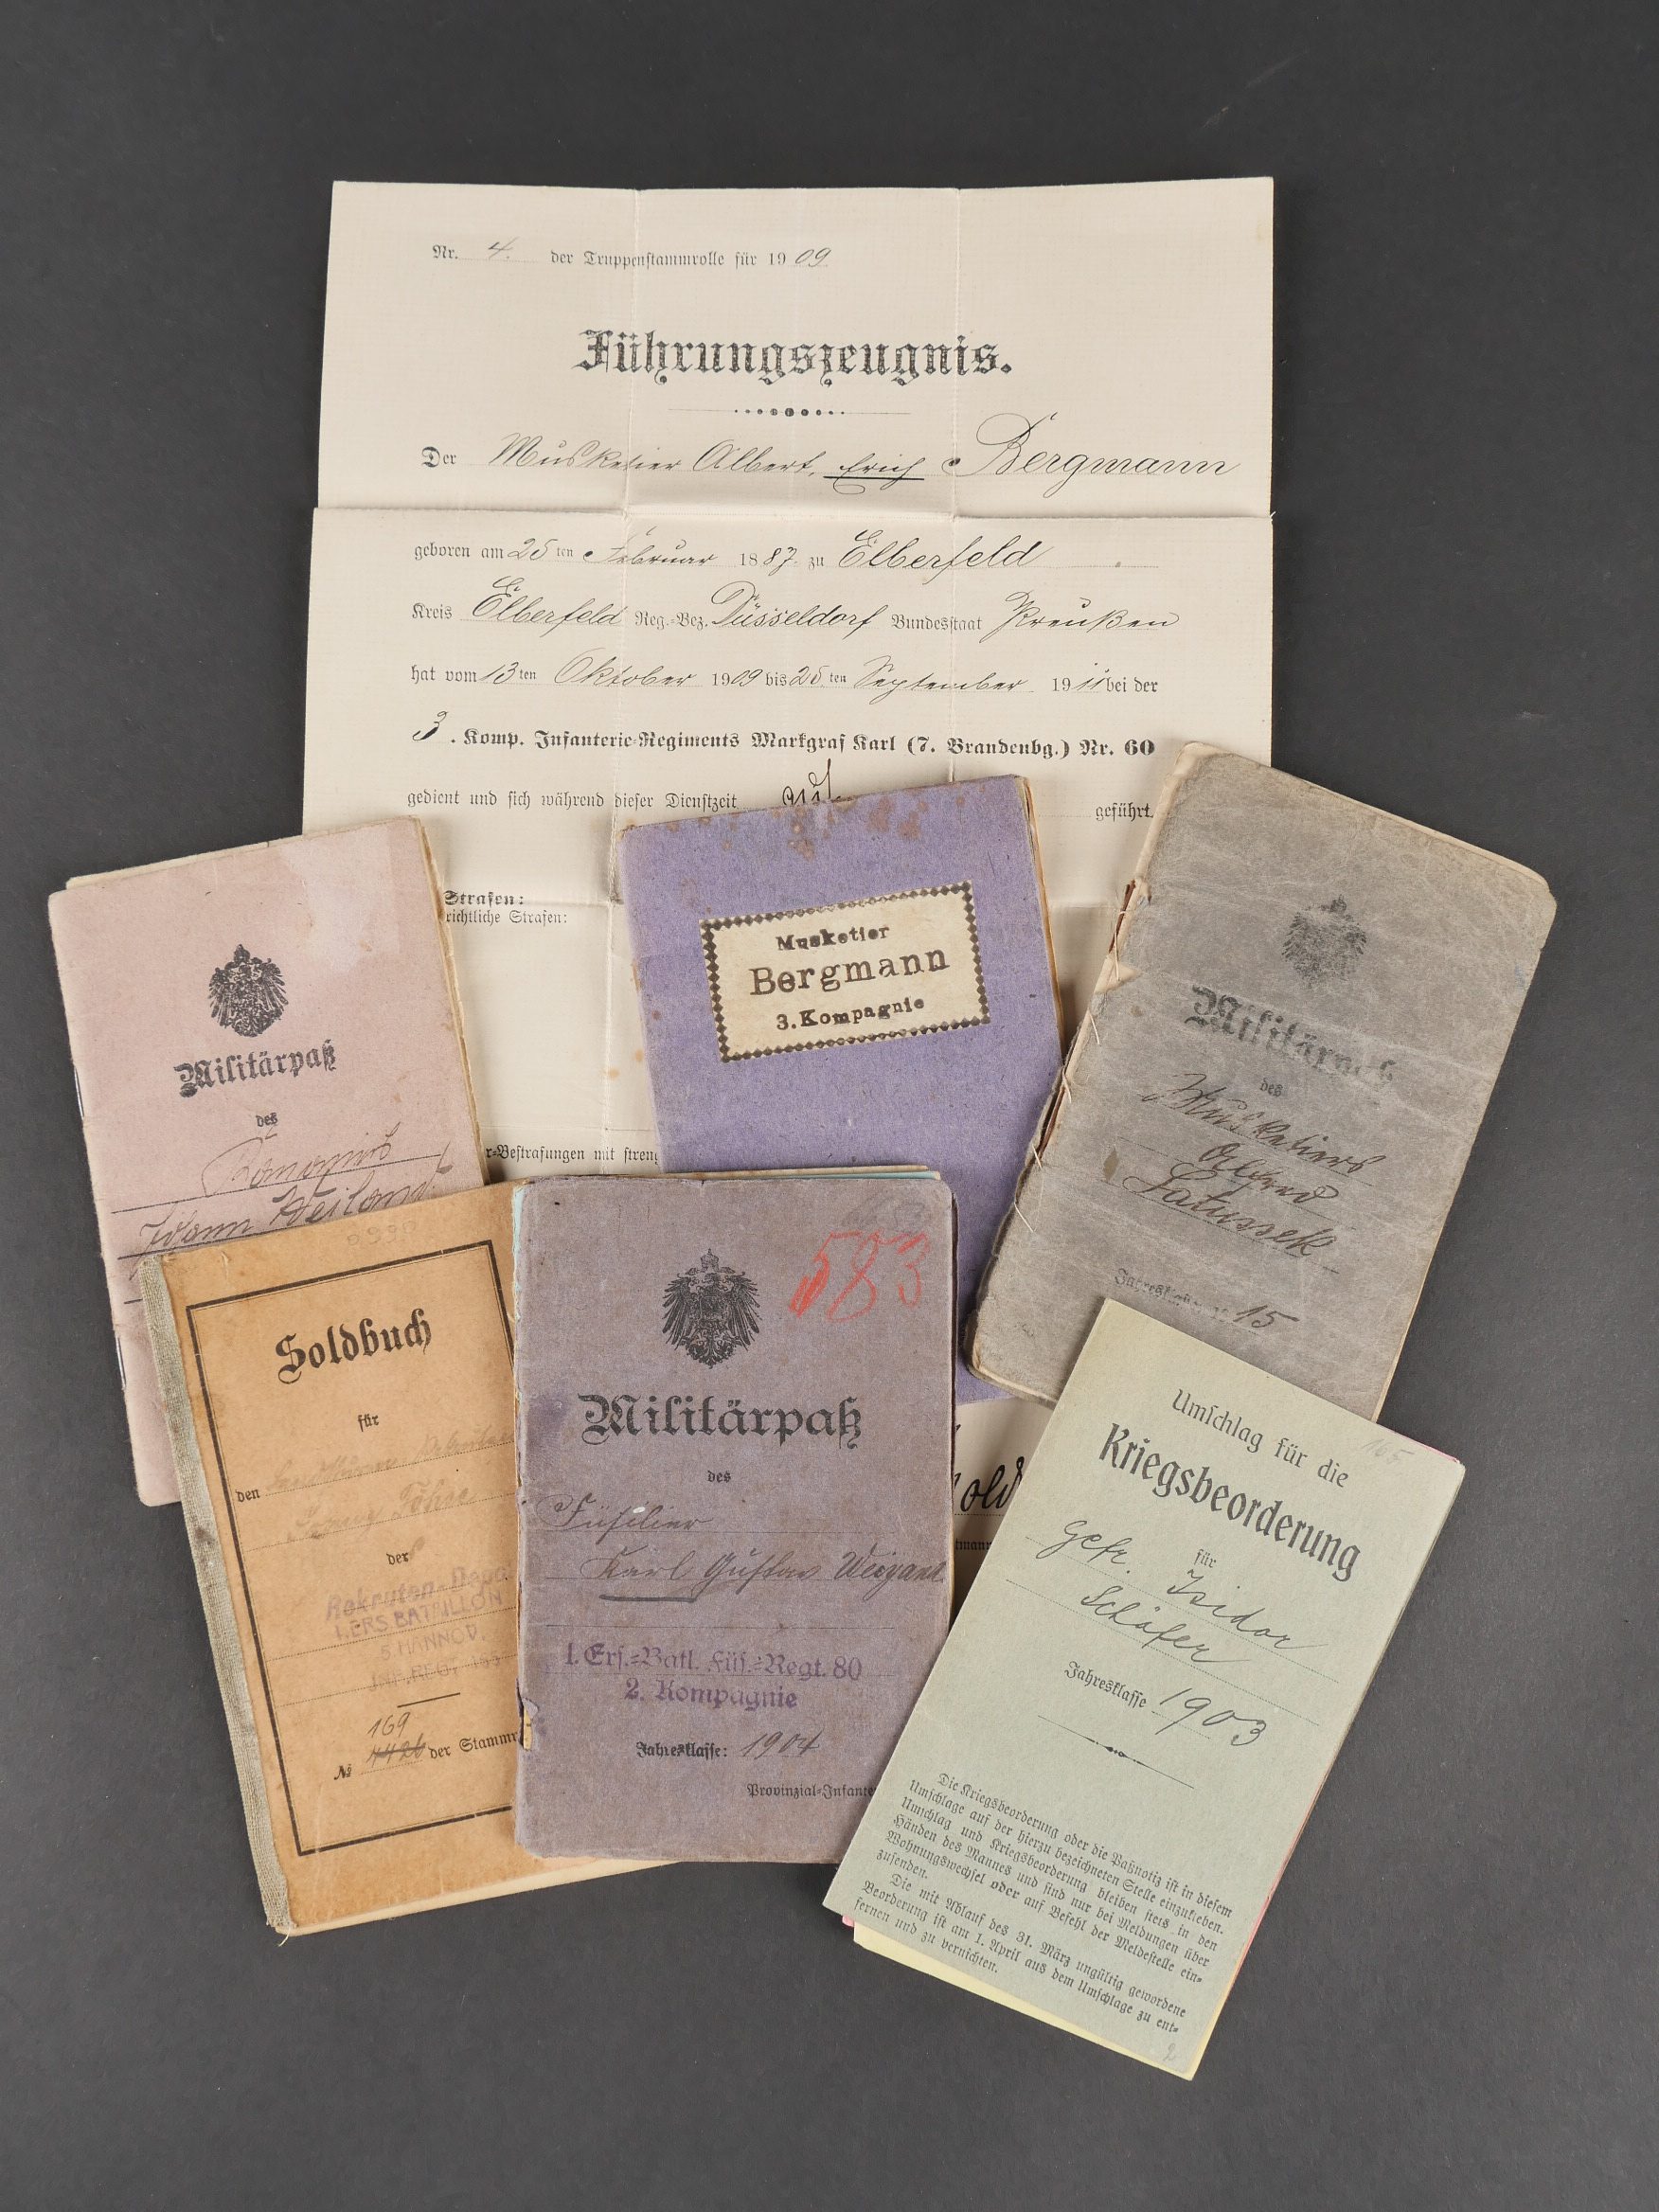 Nr. 4. der Truppenstammrolle für 1909
Führungszeugnis.
Der Musketier Albert, Erich Bergmann
geboren am 25ten Februar 1887 zu Elberfeld
Kreis Elberfeld Reg.-Bez. Düsseldorf Bundesstaat Preußen
hat vom 13ten Oktober 1909 bis 25.ten September 1911 bei der
3. Komp. Infanterie-Regiments Markgraf Karl (7. Brandenbg.) Nr. 60
gedient und sich während dieser Dienstzeit gut geführt.
Strafen:
richtliche Strafen:
r-Bestrafungen mit streng
Musketier
Bergmann
3. Kompagnie
Militärpaß
des
Johann Weiland
Militärpaß
des
Musketiers
Alfred
Latussek
Jahresklasse 1915
Soldbuch
für
den
der
Rekruten-Depot
I. ERS. BATAILLON
5 HANNOV.
INF. REGT
169
№ 4426 der Stammr
583
Militärpaß
des
Füsilier
Karl Gustav Weigand
1. Ers.-Batl. Füs.-Regt. 80
2. Kompagnie
Jahresklasse: 1904
Provinzial-Infante
old
tmann
Umschlag für die
Kriegsbeorderung
für
Gefr. Isidor
Schäfer
Jahresklasse 1903
Die Kriegsbeorderung oder die Paßnotiz ist in diesem
Umschlage auf der hierzu bezeichneten Stelle einzukleben.
Umschlag und Kriegsbeorderung bleiben stets in den
Händen des Mannes und sind nur bei Meldungen über
Wohnungswechsel oder auf Befehl der Meldestelle ein-
zusenden.
Die mit Ablauf des 31. März ungültig gewordene
Beorderung ist am 1. April aus dem Umschlage zu ent-
fernen und zu vernichten.
2